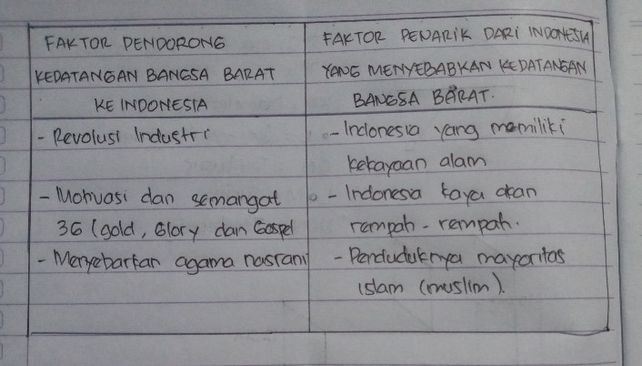 FAKTOR PENDORONG
KEDATANGAN BANGSA BARAT
KE INDONESIA
- Revolusi Industri
- Motivasi dan semangat
3G (gold, Glory dan Gospel
- Menyebarkan agama nasrani
FAKTOR PENARIK DARI INDONESIA
YANG MENYEBABKAN KEDATANGAN
BANGSA BARAT.
- Indonesia yang memiliki
kekayaan alam
- Indonesia kaya akan
rempah - rempah.
- Penduduknya mayoritas
islam (muslim).